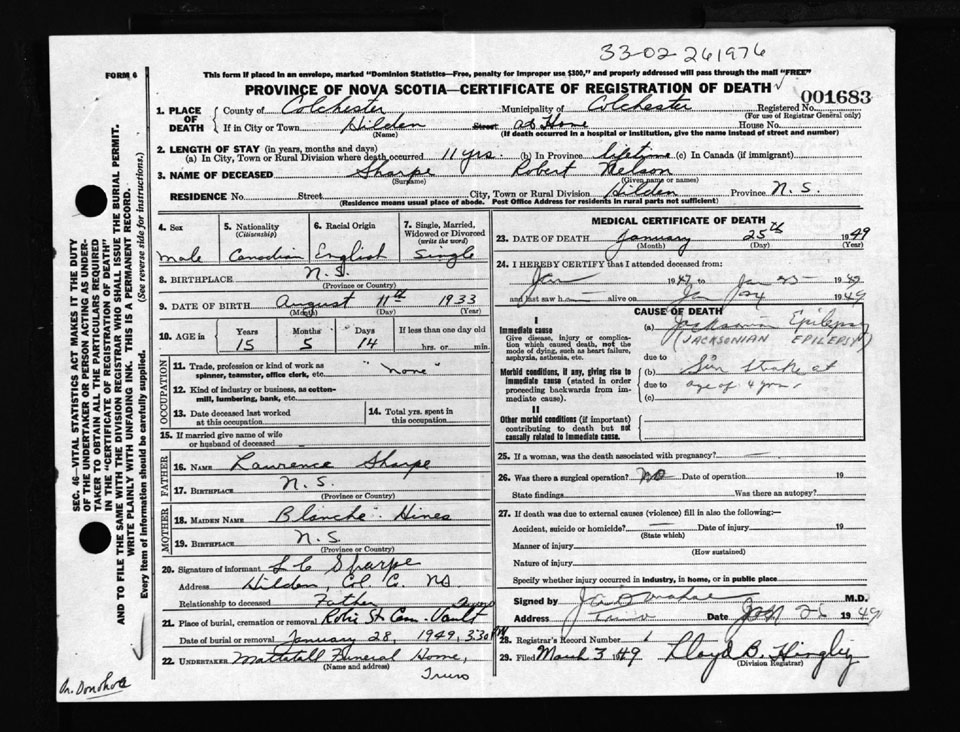 33-02-261976
FORM 6
This form if placed in an envelope, marked "Dominion Statistics—Free, penalty for improper use $300," and properly addressed will pass through the mail "FREE"
PROVINCE OF NOVA SCOTIA—CERTIFICATE OF REGISTRATION OF DEATH
001683
1. PLACE OF DEATH
County of Colchester Municipality of Colchester Registered No.
(For use of Registrar General only)
If in City or Town Hilden Street at Home House No.
(Name) (If death occurred in a hospital or institution, give the name instead of street and number)
2. LENGTH OF STAY (in years, months and days)
(a) In City, Town or Rural Division where death occurred 11 yrs. (b) In Province lifetime (c) In Canada (if immigrant)
3. NAME OF DECEASED Sharpe Robert Nelson
(Surname) (Given name or names)
RESIDENCE No. Street City, Town or Rural Division Hilden Province N. S.
(Residence means usual place of abode. Post Office Address for residents in rural parts not sufficient)
4. Sex 5. Nationality (Citizenship) 6. Racial Origin 7. Single, Married, Widowed or Divorced (write the word)
male Canadian English Single
8. BIRTHPLACE N. S.
(Province or Country)
9. DATE OF BIRTH August 11th 1933
(Month) (Day) (Year)
10. AGE in Years Months Days If less than one day old
15 5 14 hrs. or min.
OCCUPATION
11. Trade, profession or kind of work as spinner, teamster, office clerk, etc. "none"
12. Kind of industry or business, as cotton-mill, lumbering, bank, etc.
13. Date deceased last worked at this occupation
14. Total yrs. spent in this occupation
15. If married give name of wife or husband of deceased
FATHER
16. NAME Laurence Sharpe
17. BIRTHPLACE N. S.
(Province or Country)
MOTHER
18. MAIDEN NAME Blanche Hines
19. BIRTHPLACE N. S
(Province or Country)
20. Signature of informant L C Sharpe
Address Hilden Col. Co. NS
Relationship to deceased Father
21. Place of burial, cremation or removal Robie St Cem. Vault Truro
Date of burial or removal January 28, 1949, 3.30 PM
22. UNDERTAKER Mattatall Funeral Home,
(Name and address)
Truro
MEDICAL CERTIFICATE OF DEATH
23. DATE OF DEATH January 25th 1949
(Month) (Day) (Year)
24. I HEREBY CERTIFY that I attended deceased from:
Jan 1947 to Jan 25 1949
and last saw h alive on 1949
CAUSE OF DEATH
I
Immediate cause
Give disease, injury or complication which caused death, not the mode of dying, such as heart failure, asphyxia, asthenia, etc.
(a) Jacksonian Epilepsy
(JACKSONIAN EPILEPSY)
due to
Morbid conditions, if any, giving rise to immediate cause (stated in order proceeding backwards from immediate cause).
(b) Sun Stroke at
due to age of 4 yrs.
(c)
II
Other morbid conditions (if important) contributing to death but not causally related to immediate cause.
25. If a woman, was the death associated with pregnancy? —
26. Was there a surgical operation? no Date of operation 19
State findings Was there an autopsy?
27. If death was due to external causes (violence) fill in also the following:—
Accident, suicide or homicide? — Date of injury 19
(State which)
Manner of injury
(How sustained)
Nature of injury
Specify whether injury occurred in industry, in home, or in public place
Signed by M.D.
Address Truro Date Jan 25 1949
28. Registrar's Record Number 1
29. Filed March 3 1949 Lloyd B.
(Division Registrar)
SEC. 46—VITAL STATISTICS ACT MAKES IT THE DUTY
OF THE UNDERTAKER OR PERSON ACTING AS UNDER-
TAKER TO OBTAIN ALL THE PARTICULARS REQUIRED
IN THE "CERTIFICATE OF REGISTRATION OF DEATH"
AND TO FILE THE SAME WITH THE DIVISION REGISTRAR WHO SHALL ISSUE THE BURIAL PERMIT.
WRITE PLAINLY WITH UNFADING INK. THIS IS A PERMANENT RECORD.
Every item of information should be carefully supplied. (See reverse side for instructions.)
Dr. Donahoe